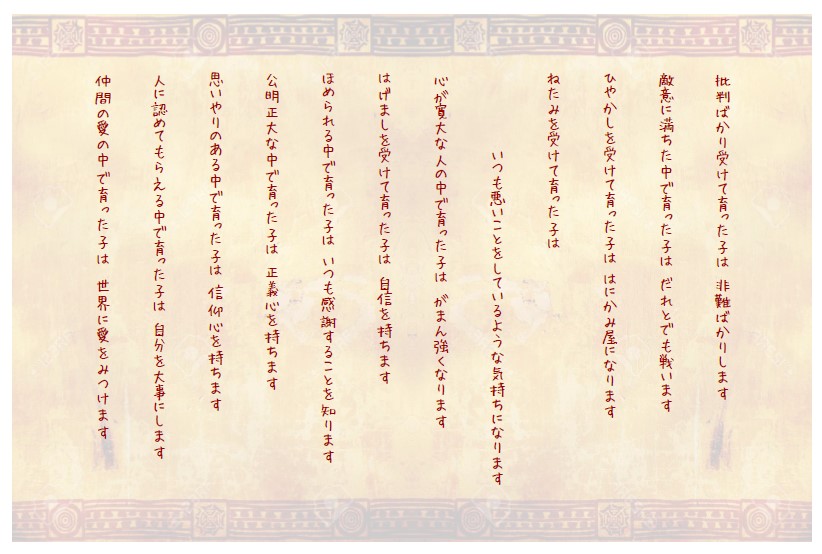 批判ばかり受けて育った子は　非難ばかりします
敵意に満ちた中で育った子は　だれとでも戦います
ひやかしを受けて育った子は　はにかみ屋になります
ねたみを受けて育った子は
いつも悪いことをしているような気持ちになります
心が寛大な人の中で育った子は　がまん強くなります
はげましを受けて育った子は　自信を持ちます
ほめられる中で育った子は　いつも感謝することを知ります
公明正大な中で育った子は　正義心を持ちます
思いやりのある中で育った子は　信仰心を持ちます
人に認めてもらえる中で育った子は　自分を大事にします
仲間の愛の中で育った子は　世界に愛をみつけます